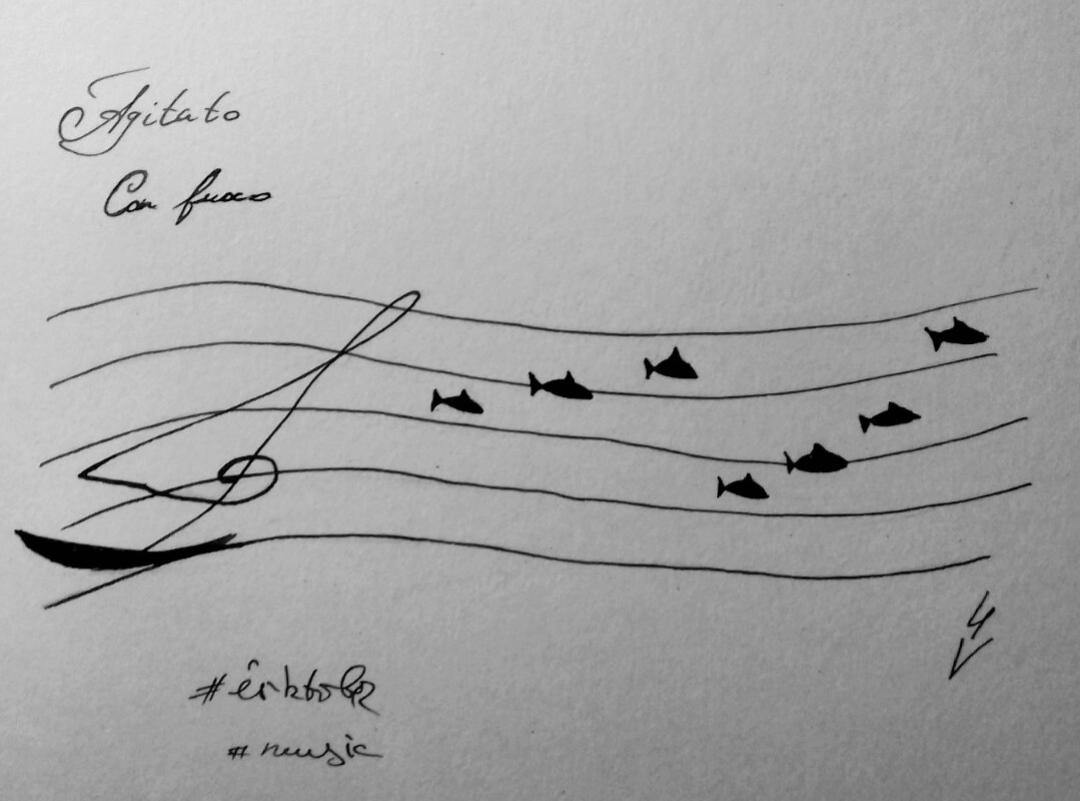 Agitato
Con fuoco
#music